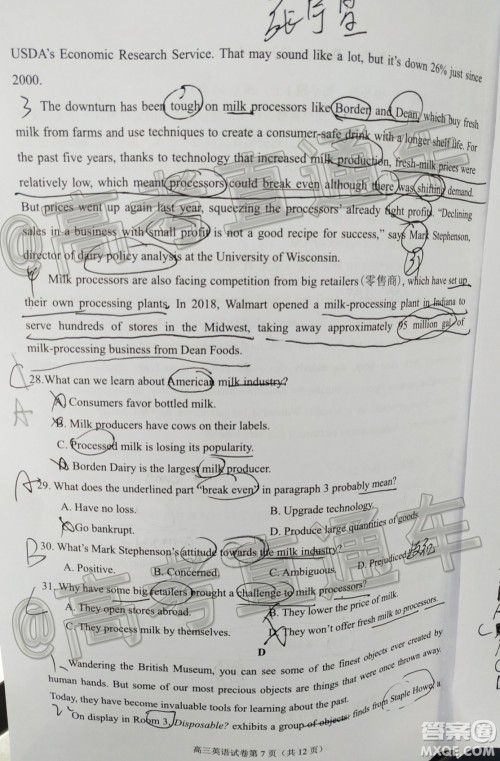 USDA's Economic Research Service. That may sound like a lot, but it's down 26% just since
2000.
3 The downturn has been tough on milk processors like Border and Dean, which buy fresh
milk from farms and use techniques to create a consumer-safe drink with a longer shelf life. For
the past five years, thanks to technology that increased milk production, fresh-milk prices were
relatively low, which meant processors could break even although there was shifting demand.
But prices went up again last year, squeezing the processors' already tight profit. "Declining
sales in a business with small profit is not a good recipe for success," says Mark Stephenson,
director of dairy policy analysis at the University of Wisconsin.
31
Milk processors are also facing competition from big retailers(零售商), which have set up
their own processing plants. In 2018, Walmart opened a milk-processing plant in Indiana to
serve hundreds of stores in the Midwest, taking away approximately 95 million gal. of
milk-processing business from Dean Foods.
C 28.What can we learn about American milk industry?
A A. Consumers favor bottled milk.
B. Milk producers have cows on their labels.
C. Processed milk is losing its popularity.
D. Borden Dairy is the largest milk producer.
A 29. What does the underlined part "break even" in paragraph 3 probably mean?
A. Have no loss. B. Upgrade technology.
C. Go bankrupt. D. Produce large quantities of goods
B 30. What's Mark Stephenson's attitude towards the milk industry?
A. Positive. B. Concerned. C. Ambiguous. D. Prejudiced.
C 31. Why have some big retailers brought a challenge to milk processors?
A. They open stores abroad. B. They lower the price of milk.
C. They process milk by themselves. D. They won't offer fresh milk to processors.
D
1 Wandering the British Museum, you can see some of the finest objects ever created by
human hands. But some of our most precious objects are things that were once thrown away.
Today, they have become invaluable tools for learning about the past.
2 On display in Room 3, Disposable? exhibits a group of objects: finds from Staple Howe, a
高三英语试卷第 7 页（共 12 页）
@高考直通车
@高考直通车
答案圈
MXQE.COM